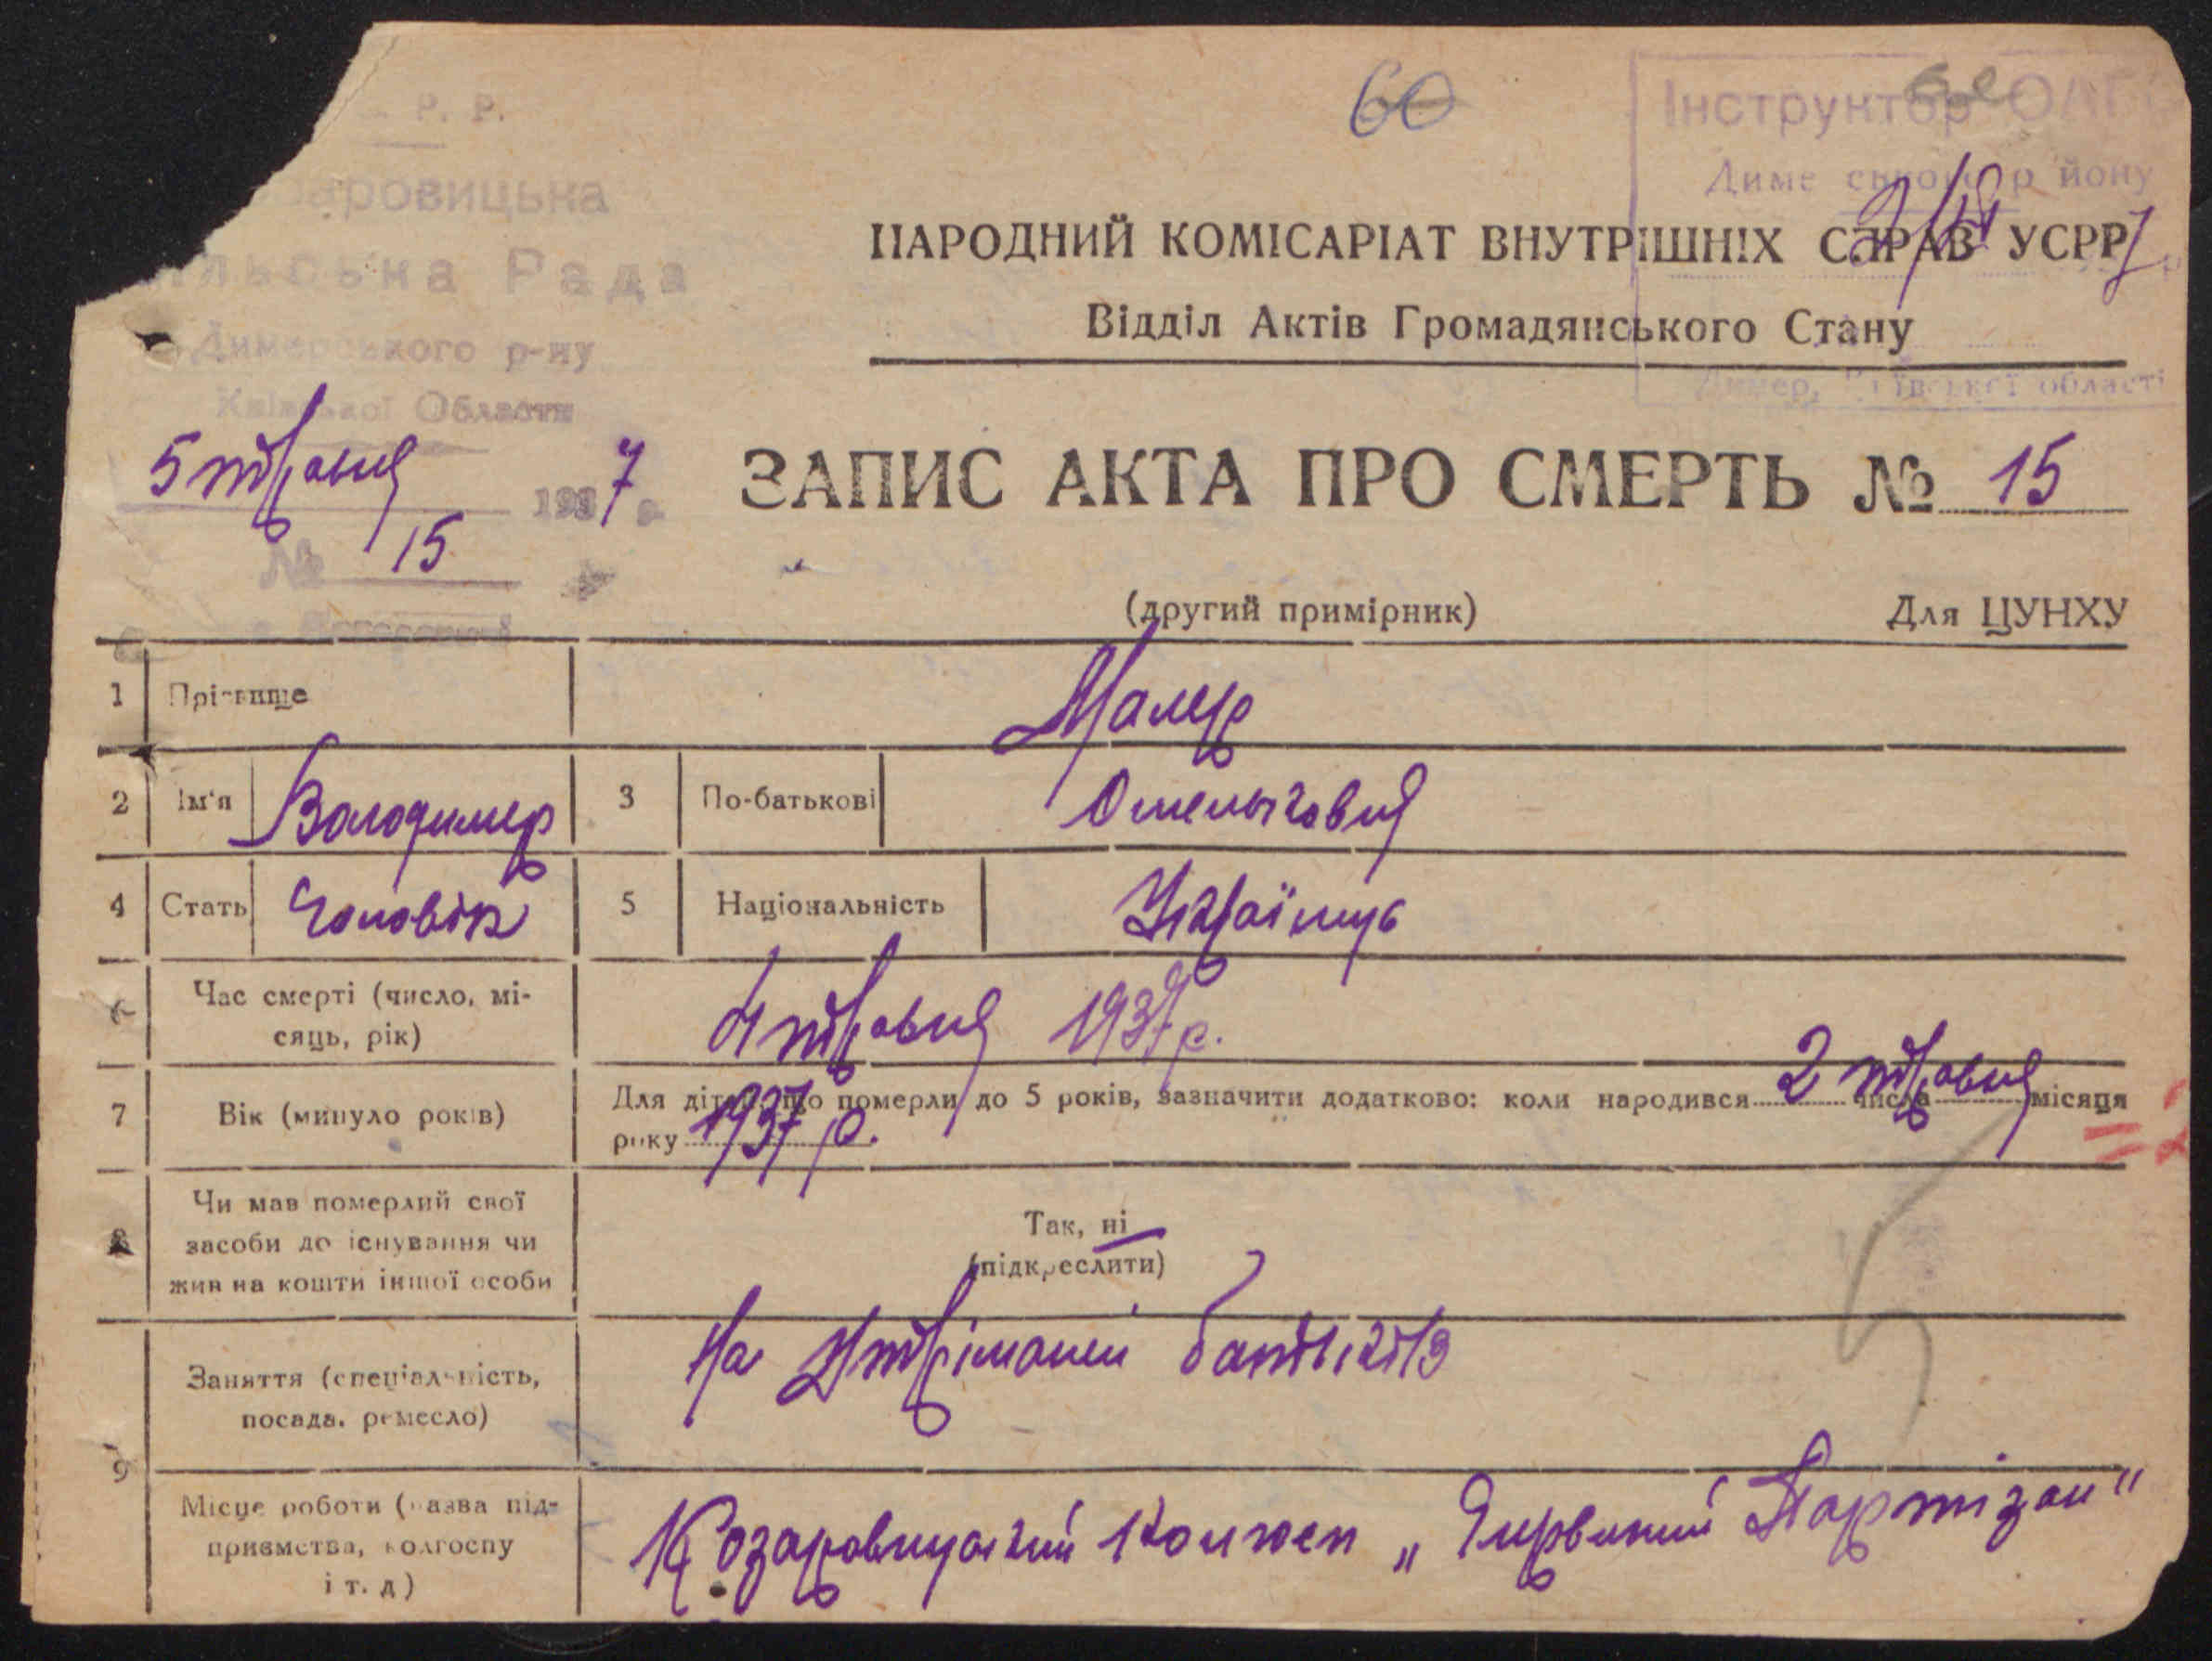 Р. Р.
60
Інструктор ОАГС
аровицька
йону
НАРОДНИЙ КОМІСАРІАТ ВНУТРІШНІХ СПРАВ УСРР
льська Рада
Відділ Актів Громадянського Стану
Димерського р-ну
Київської Области
Димер, Київської області
5 травня 1937 р.
ЗАПИС АКТА ПРО СМЕРТЬ № 15
№ 15
(другий примірник)
Для ЦУНХУ
1 Прізвище
Маляр
2 Ім'я Володимер 3 По-батькові
4 Стать Чоловік 5 Національність Українць
6 Час смерті (число, мі-
сяць, рік)
4 травня 1937 р.
7 Вік (минуло років)
Для дітей, що померли до 5 років, зазначити додатково: коли народився 2 числа травня місяця
року 1937 р.
8 Чи мав померлий свої
засоби до існування чи
жив на кошти іншої особи
Так, ні
(підкреслити)
9 Заняття (спеціальність,
посада, ремесло)
На утрімані батьків
Місце роботи (назва під-
приємства, колгоспу
і т. д)
Козаровицький колхоз „Чирвоний Партізан"